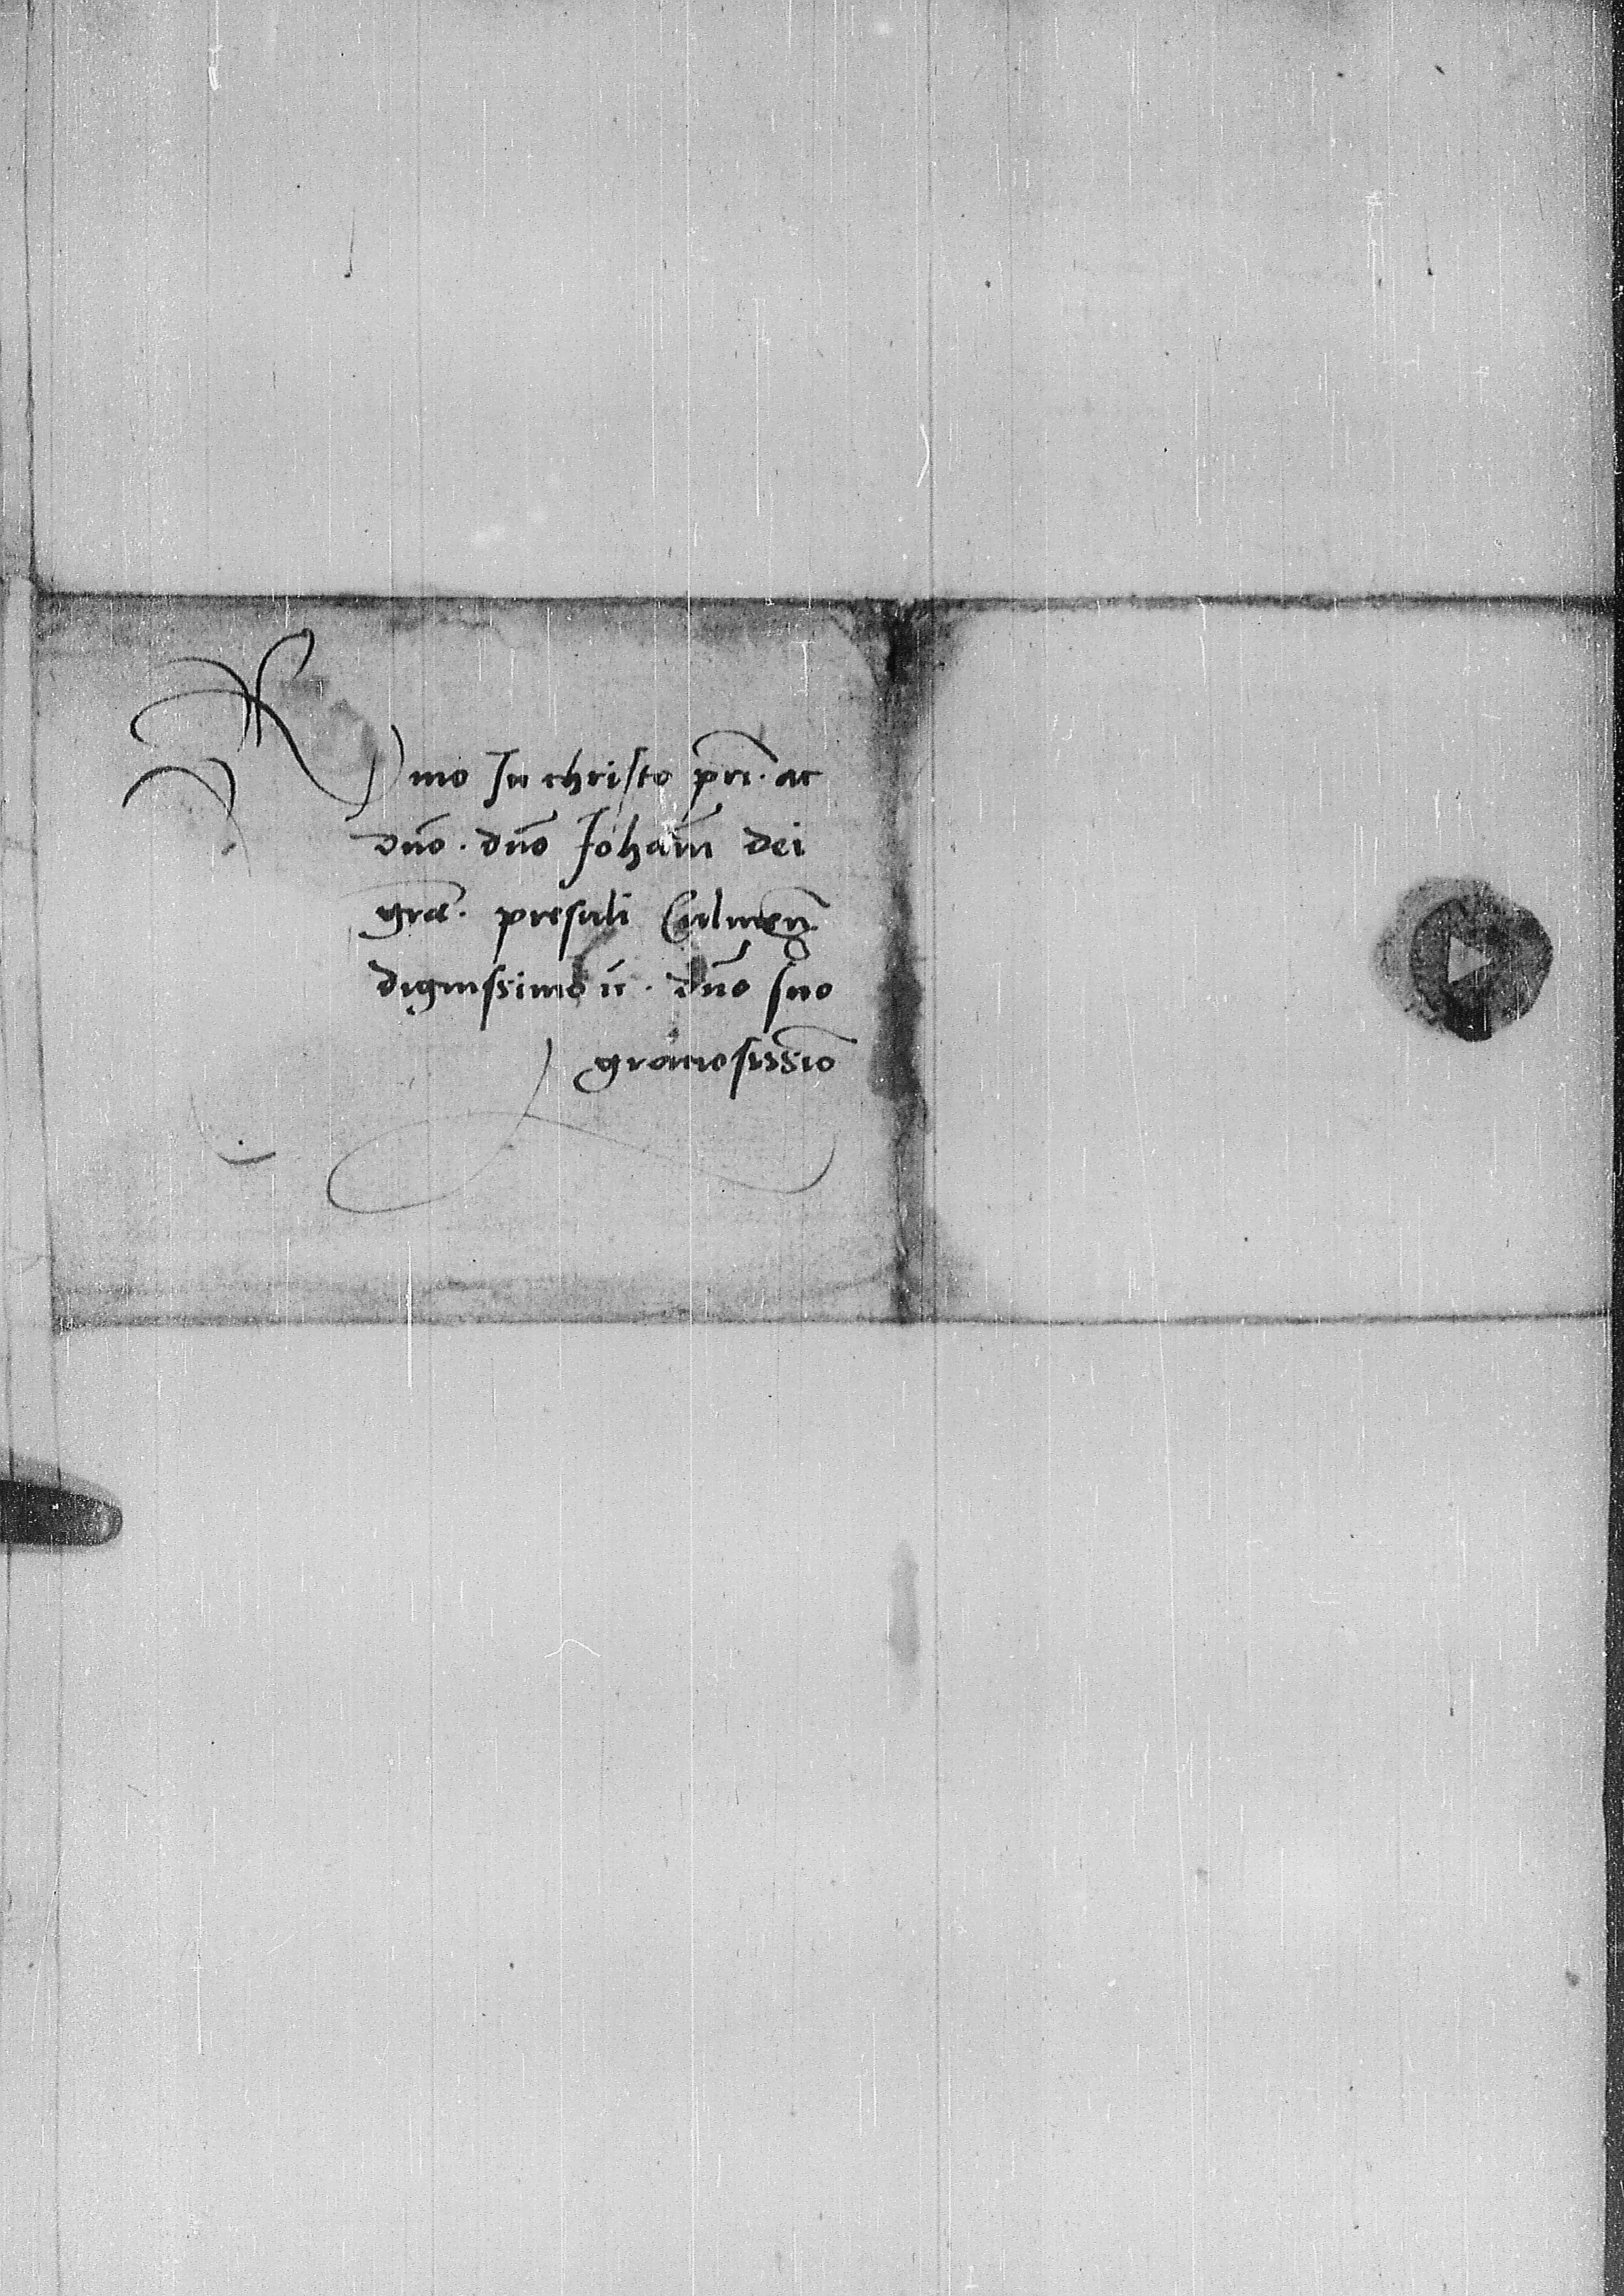 Rdmo In christo pri. ac
dno. dno Iohanni dei
gra. presuli Culmen
dignissimo ac. dno suo
graciosissimo